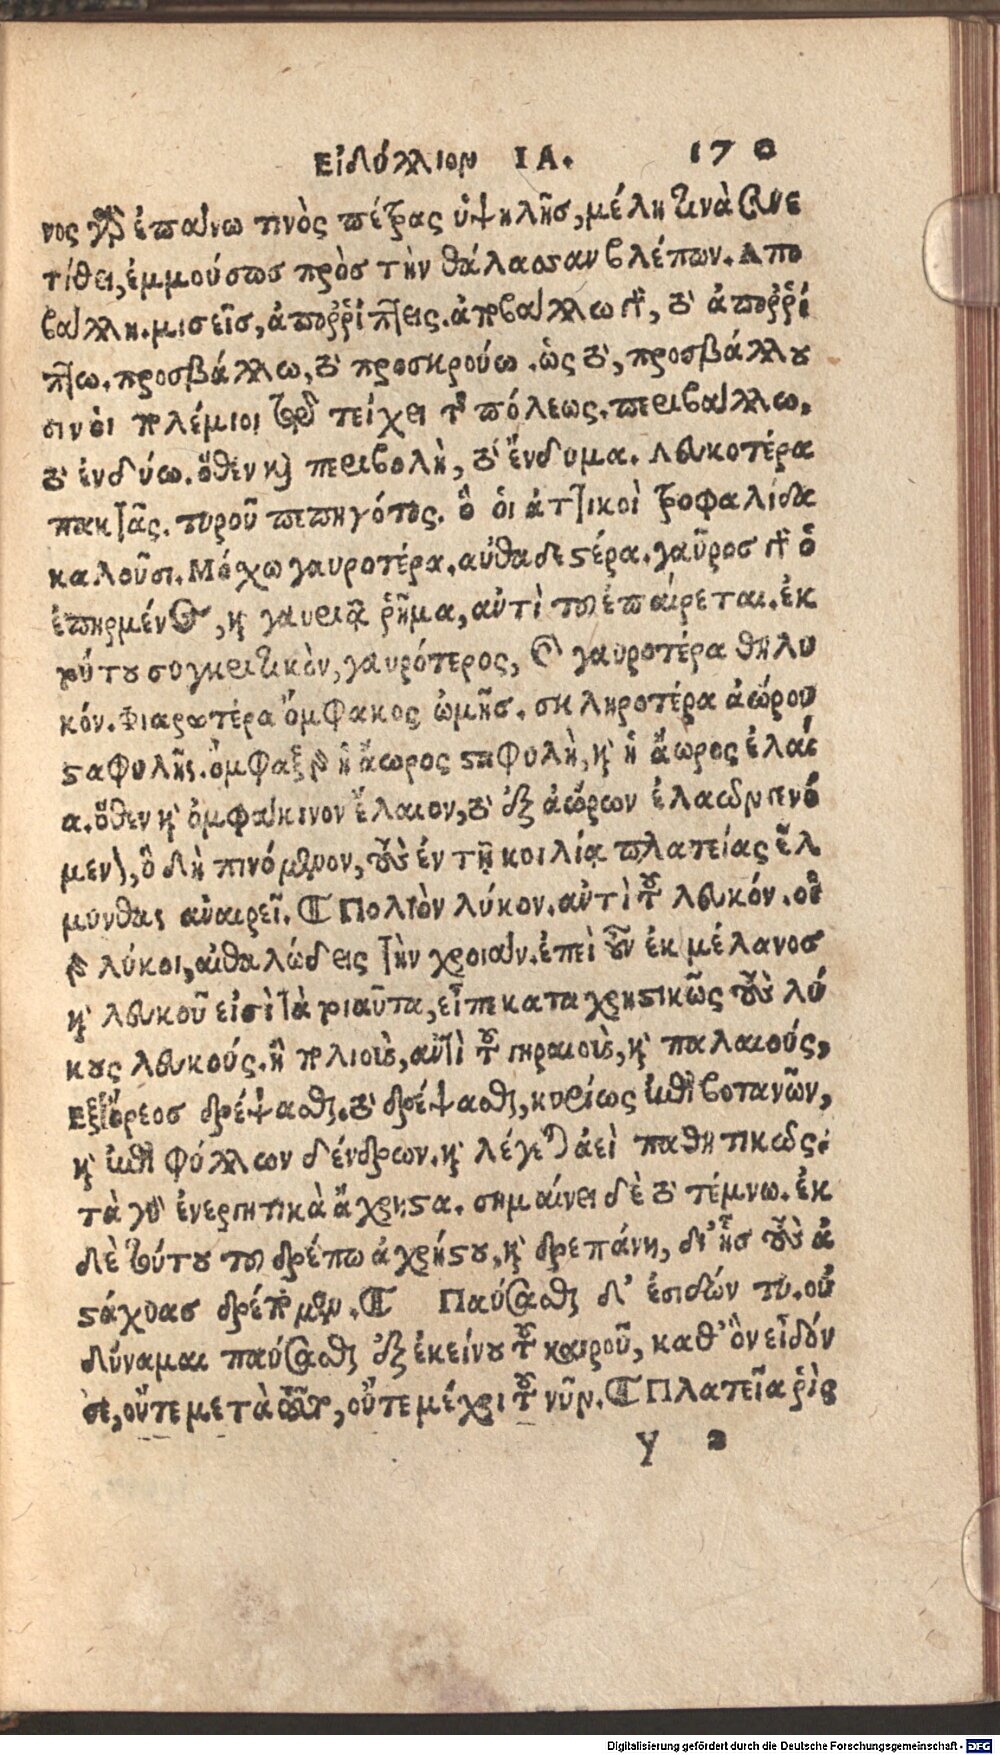 Εἰδύλλιον ΙΑ. 170
νος γὰρ ἐπάνω τινὸς πέτρας ὑψηλῆς, μέλη τινὰ συνε
τίθει, ἐμμούσως πρὸς τὴν θάλασσαν βλέπων. Απο
βάλλῃ. μισεῖς, ἀποῤῥίπτεις. ἀποβάλλω γὰρ, τὸ ἀποῤῥί
πτω. προσβάλλω, τὸ προσκρούω. ὡς τὸ, προσβάλλου
σιν οἱ πολέμιοι τῷ τείχει τῆς πόλεως. περιβάλλω.
τὸ ἐνδύω. ὅθεν καὶ περιβολὴ, τὸ ἔνδυμα. Λευκοτέρα
πακτᾶς. τυροῦ πεπηγότος. ὃ οἱ ἀττικοὶ τροφαλίδα
καλοῦσι. Μόσχω γαυροτέρα. αὐθαδεστέρα. γαῦρος γὰρ ὁ
ἐπηρμένος, καὶ γαυριᾷ ῥῆμα, ἀντὶ τοῦ ἐπαίρεται. ἐκ
τούτου συγκριτικὸν, γαυρότερος, καὶ γαυροτέρα θηλυ
κόν. Φιαρωτέρα ὄμφακος ὠμῆς. σκληροτέρα ἀώρου
σταφυλῆς. ὄμφαξ γὰρ ἡ ἄωρος σταφυλὴ, καὶ ἡ ἄωρος ἐλαί
α. ὅθεν καὶ ὀμφάκινον ἔλαιον, τὸ ἐξ ἀώρων ἐλαιῶν γινό
μενον, ὃ δὴ πινόμενον, τοὺς ἐν τῇ κοιλίᾳ πλατείας ἕλ
μινθας ἀναιρεῖ. ¶ Πολιὸν λύκον. ἀντὶ τοῦ λευκόν. οἱ
γὰρ λύκοι, αἰθαλώδεις τὴν χροιάν. ἐπεὶ οὖν ἐκ μέλανος
καὶ λευκοῦ εἰσὶ τὰ τοιαῦτα, εἶπε καταχρηστικῶς τοὺς λύ
κους λευκούς. ἢ πολιοὺς, ἀντὶ τοῦ γηραιοὺς, καὶ παλαιούς,
Εξ ὄρεος δρέψασθαι. τὸ δρέψασθαι, κυρίως ἐπὶ βοτανῶν,
καὶ ἐπὶ φύλλων δένδρων. καὶ λέγεται ἀεὶ παθητικῶς.
τὰ γὰρ ἐνεργητικὰ ἄχρηστα. σημαίνει δὲ τὸ τέμνω. ἐκ
δὲ τούτου τοῦ δρέπω ἀχρήστου, καὶ δρεπάνη, δι' ἧς τοὺς ἀ
στάχυας δρέπομεν. ¶ Παύσασθαι δ' ἐσιδών τυ. οὐ
δύναμαι παύσασθαι ἐξ ἐκείνου τοῦ καιροῦ, καθ' ὃν εἶδόν
σε, οὔτε μετὰ ταῦτα, οὔτε μέχρι τοῦ νῦν. ¶ Πλατεῖα ῥὶς
y 2
Digitalisierung gefördert durch die Deutsche Forschungsgemeinschaft - DFG